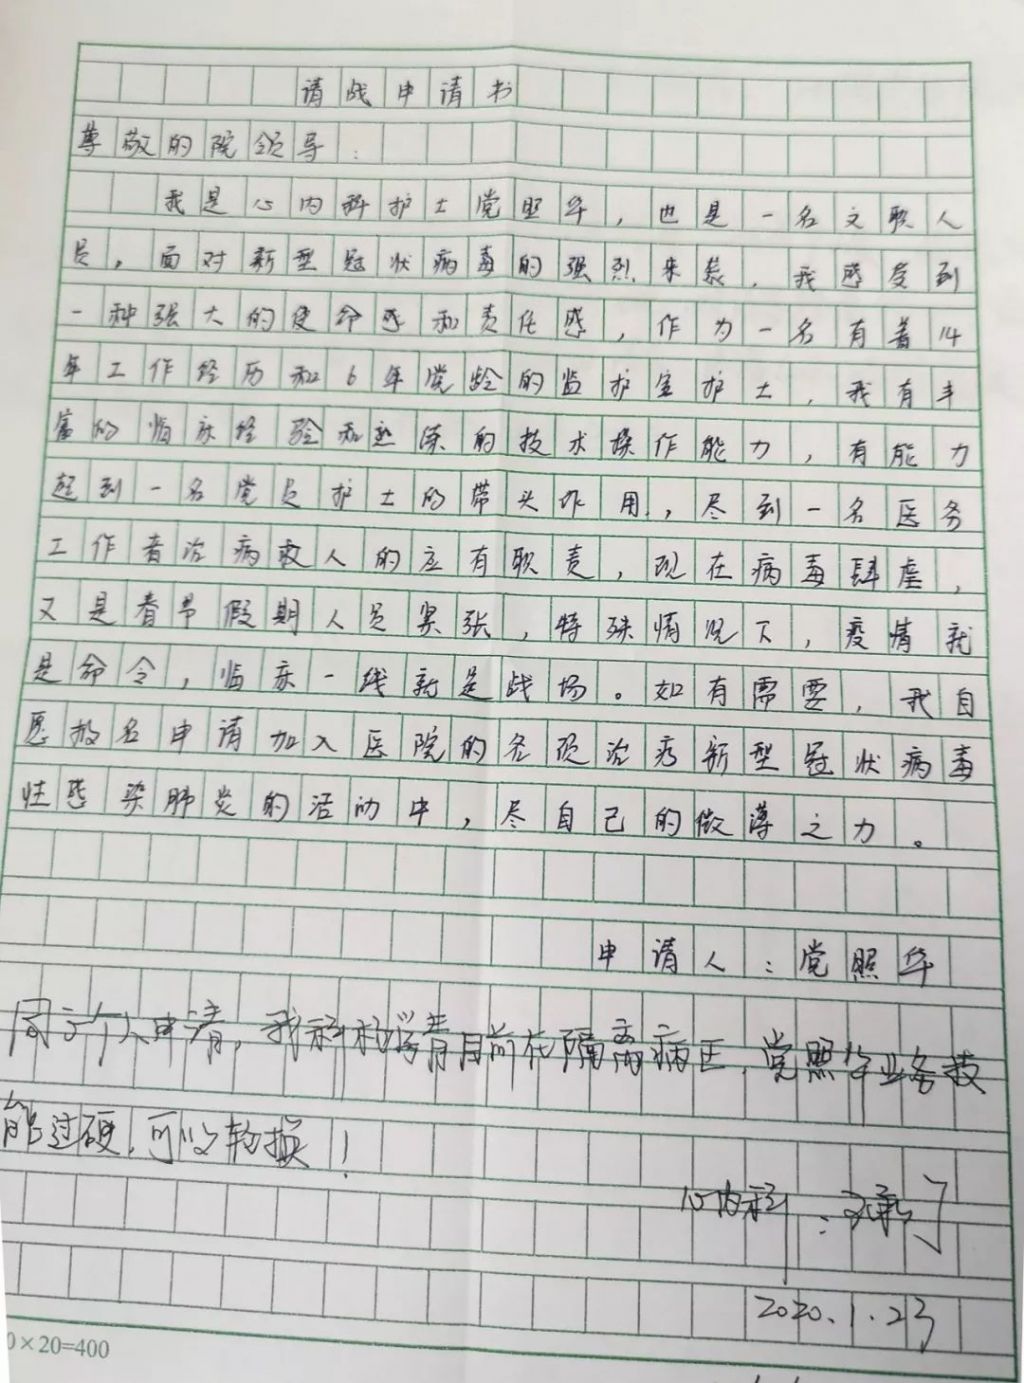 请战申请书
尊敬的院领导：
我是心内科护士党照华，也是一名文职人
员，面对新型冠状病毒的强烈来袭，我感受到
一种强大的使命感和责任感，作为一名有着14
年工作经历和6年党龄的监护室护士，我有丰
富的临床经验和熟练的技术操作能力，有能力
起到一名党员护士的带头作用，尽到一名医务
工作者治病救人的应有职责，现在病毒肆虐，
又是春节假期人员紧张，特殊情况下，疫情就
是命令，临床一线就是战场。如有需要，我自
愿报名申请加入医院的各项治疗新型冠状病毒
性感染肺炎的活动中，尽自己的微薄之力。
申请人：党照华
同意个人申请，我科杨学青目前在隔离病区，党照华业务技
能过硬，可以轮换！
心内科：
2020.1.23
0×20=400